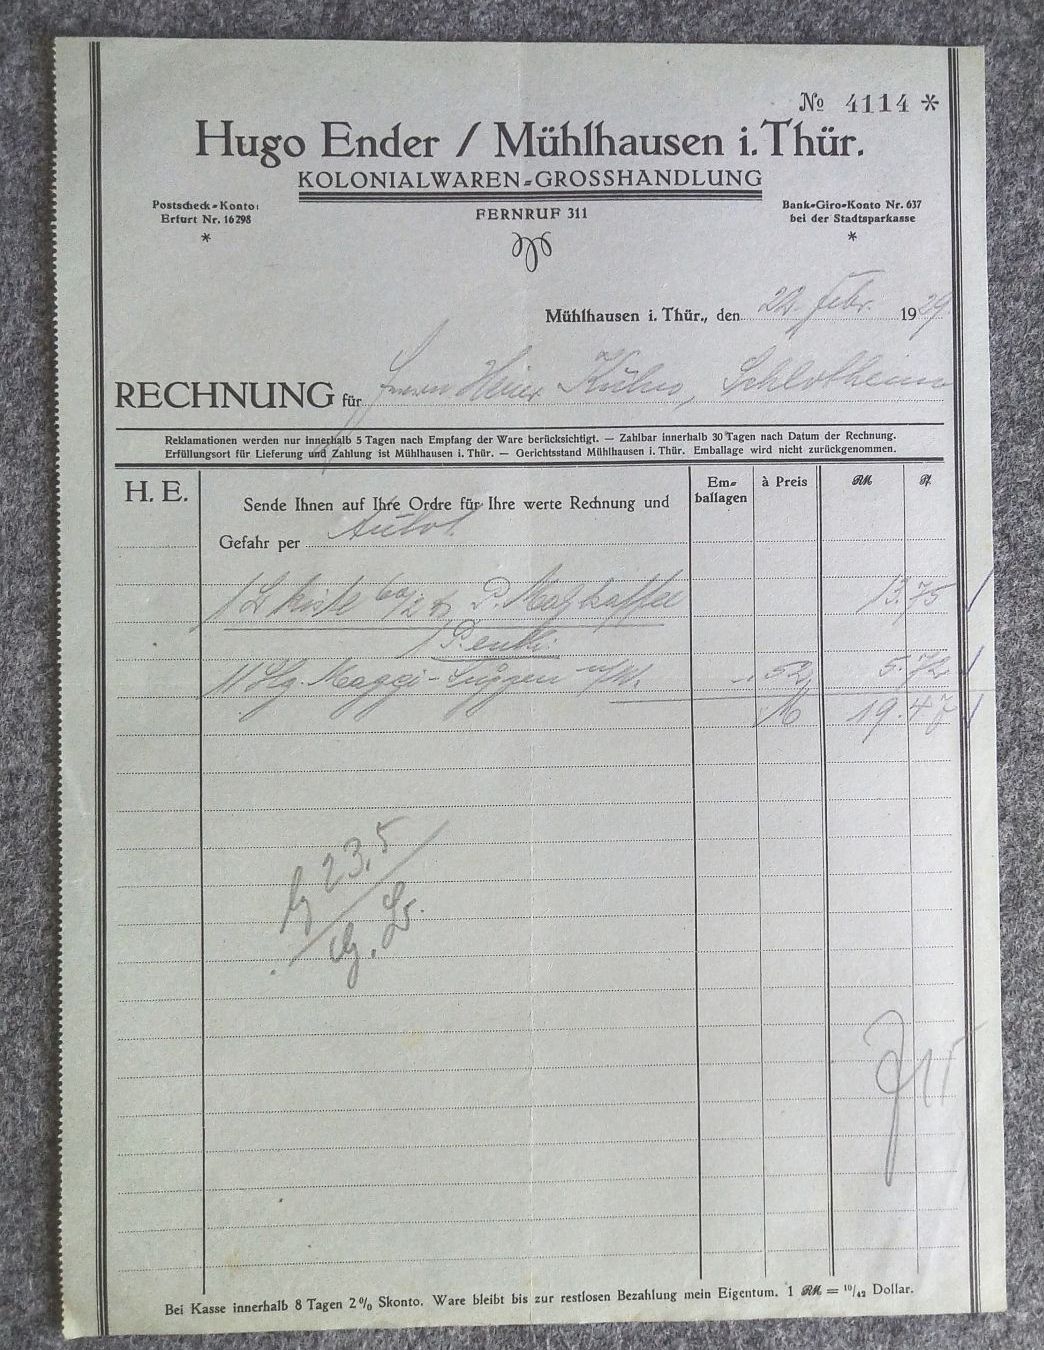 No 4114 *
Hugo Ender / Mühlhausen i. Thür.
KOLONIALWAREN-GROSSHANDLUNG
Postscheck-Konto:
Erfurt Nr. 16298
*
FERNRUF 311
Bank-Giro-Konto Nr. 637
bei der Stadtsparkasse
*
Mühlhausen i. Thür., den 22. Febr. 1929.
RECHNUNG für Herrn Heinr. Schlotheim
Reklamationen werden nur innerhalb 5 Tagen nach Empfang der Ware berücksichtigt. — Zahlbar innerhalb 30 Tagen nach Datum der Rechnung.
Erfüllungsort für Lieferung und Zahlung ist Mühlhausen i. Thür. — Gerichtsstand Mühlhausen i. Thür. Emballage wird nicht zurückgenommen.
H. E.
Sende Ihnen auf Ihre Ordre für Ihre werte Rechnung und
Gefahr per Auto
Em-
ballagen
à Preis
RM
Pf.
1 Kiste 60/2 Malzkaffee 13.75
11 Maggi-Suppen -.52 5.72
19.47
23,5
Bei Kasse innerhalb 8 Tagen 2% Skonto. Ware bleibt bis zur restlosen Bezahlung mein Eigentum. 1 RM = 10/42 Dollar.